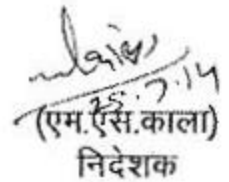 25.7.14
(एम.एस.काला)
निदेशक